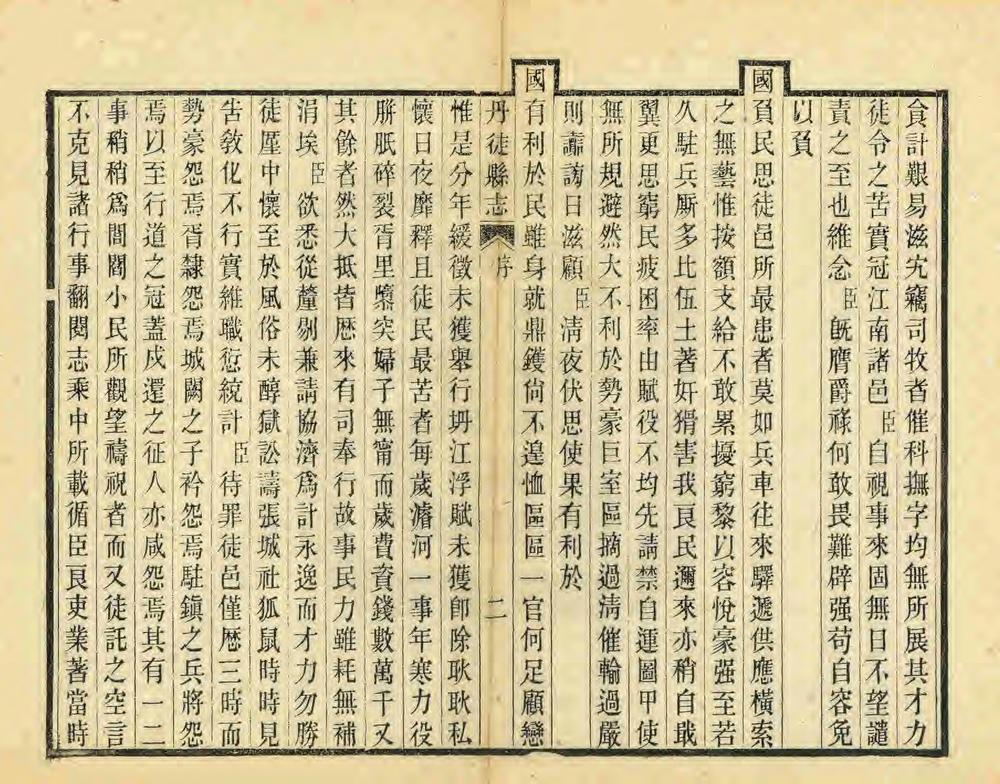 貪計艱易滋宄竊司牧者催科撫字均無所展其才力
徒令之苦實冠江南諸邑臣自視事來固無日不望譴
責之至也維念臣旣膺爵祿何敢畏難辟强苟自容免
以負
國
負民思徒邑所最患者莫如兵車往來驛遞供應橫索
之無藝惟按額支給不敢累擾窮黎以容悅豪强至若
久駐兵厮多比伍土著奸猾害我良民邇來亦稍自戢
翼更思窮民疲困率由賦役不均先請禁自運圖甲使
無所規避然大不利於勢豪巨室區摘過淸催輸過嚴
則讟謗日滋顧臣淸夜伏思使果有利於
國
有利於民雖身就鼎鑊尙不遑恤區區一官何足顧戀
丹徒縣志 序 二
惟是分年緩徵未獲舉行坍江浮賦未獲卽除耿耿私
懷日夜靡釋且徒民最苦者每歲濬河一事年寒力役
胼胝碎裂胥里隳突婦子無甯而歲費資錢數萬千又
其餘者然大抵皆歷來有司奉行故事民力雖耗無補
涓埃臣欲悉從釐剔兼請協濟爲計永逸而才力勿勝
徒廑中懷至於風俗未醇獄訟譸張城社狐鼠時時見
吿敎化不行實維職愆統計臣待罪徒邑僅歷三時而
勢豪怨焉胥隸怨焉城闕之子衿怨焉駐鎭之兵將怨
焉以至行道之冠蓋戍還之征人亦咸怨焉其有一二
事稍稍爲閭閻小民所觀望禱祝者而又徒託之空言
不克見諸行事翻閱志乘中所載循臣良吏業著當時